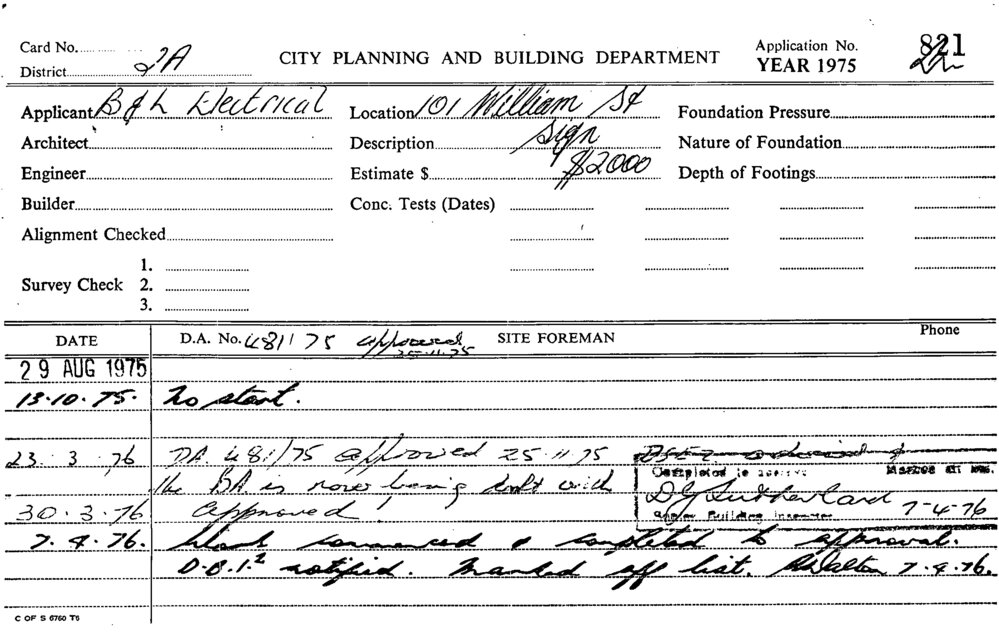 Card No.
District 2A
CITY PLANNING AND BUILDING DEPARTMENT
Application No. 821
YEAR 1975 2/2
Applicant B & L Electrical
Location 101 William St
Foundation Pressure
Architect
Description Sign
Nature of Foundation
Engineer
Estimate $ $2000
Depth of Footings
Builder
Conc. Tests (Dates)
Alignment Checked
Survey Check 1.
2.
3.
DATE
D.A. No. 481/75 approved 25-11-75
SITE FOREMAN
Phone
29 AUG 1975
13.10.75. No start.
23.3.76 DA 481/75 approved 25 11 75
the BA is now being dealt with
30.3.76 approved!
Completed in
D J Sutherland 7-4-76
Building
7.4.76. Work commenced & completed to approval.
D.B.I. notified. Marked off list. R Walton 7.4.76.
C OF S 6760 T6